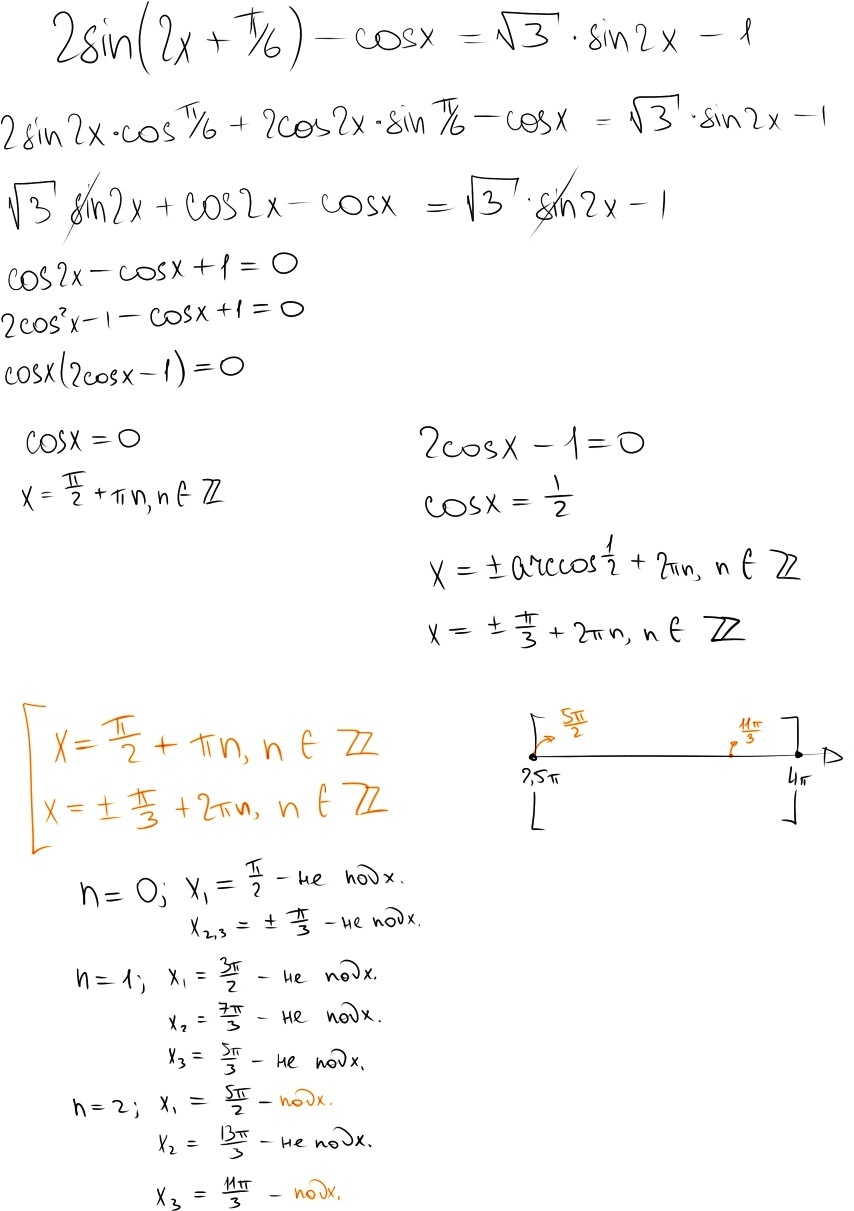 2sin(2x + π/6) - cosx = √3 · sin2x - 1
2sin2x·cos π/6 + 2cos2x·sin π/6 - cosx = √3 · sin2x - 1
√3 sin2x + cos2x - cosx = √3 · sin2x - 1
cos2x - cosx + 1 = 0
2cos²x - 1 - cosx + 1 = 0
cosx(2cosx - 1) = 0
cosx = 0
x = π/2 + πn, n ∈ ℤ
2cosx - 1 = 0
cosx = 1/2
x = ± arccos 1/2 + 2πn, n ∈ ℤ
x = ± π/3 + 2πn, n ∈ ℤ
x = π/2 + πn, n ∈ ℤ
x = ± π/3 + 2πn, n ∈ ℤ
5π/2
11π/3
2,5π
4π
n = 0; x₁ = π/2 - не подх.
x₂,₃ = ± π/3 - не подх.
n = 1; x₁ = 3π/2 - не подх.
x₂ = 7π/3 - не подх.
x₃ = 5π/3 - не подх.
n = 2; x₁ = 5π/2 - подх.
x₂ = 13π/3 - не подх.
x₃ = 11π/3 - подх.